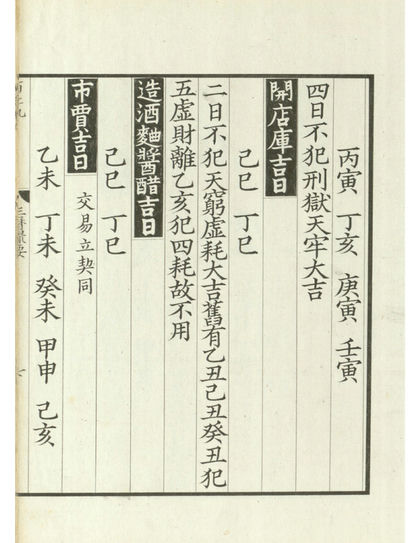 丙寅 丁亥 庚寅 壬寅
四日不犯刑獄天牢大吉
開店庫吉日
己巳 丁巳
二日不犯天窮虛耗大吉舊有乙丑己丑癸丑犯
五虛財離乙亥犯四耗故不用
造酒麯醬醋吉日
己巳 丁巳
市賈吉日
交易立契同
乙未 丁未 癸未 甲申 己亥